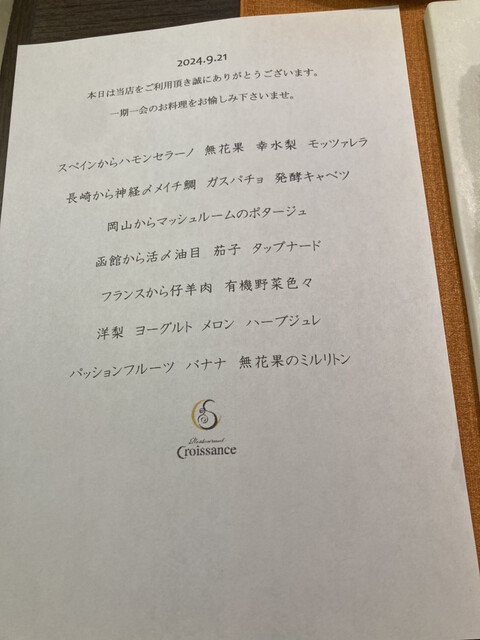 2024.9.21
本日は当店をご利用頂き誠にありがとうございます。
一期一会のお料理をお愉しみ下さいませ。
スペインからハモンセラーノ 無花果 幸水梨 モッツァレラ
長崎から神経〆メイチ鯛 ガスパチョ 発酵キャベツ
岡山からマッシュルームのポタージュ
函館から活〆油目 茄子 タップナード
フランスから仔羊肉 有機野菜色々
洋梨 ヨーグルト メロン ハーブジュレ
パッションフルーツ バナナ 無花果のミルリトン
Restaurant
Croissance